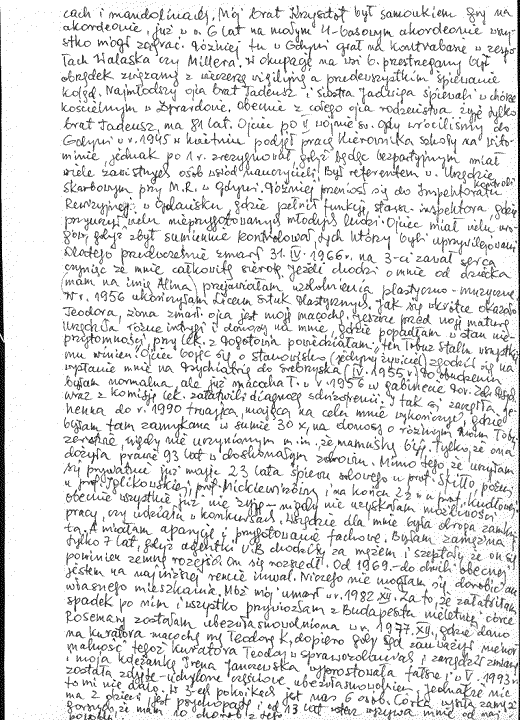 cach i mandolinach. Mój brat Krzysztof był samoukiem gry na
akordeonie, już w w. 6 lat na małym 4-basowym akordeonie wszy-
stko mógł zagrać. Później tu w Gdyni grał na kontrabasie w zespo-
łach Walaska czy Millera. W okupację na wsi b. przestrzegany był
obrządek związany z wieczerzą wigilijną a przedewszystkim śpiewanie
kolęd. Najmłodszy ojca brat Tadeusz i siostra Jadwiga śpiewali w chórze
kościelnym w Żyrardowie. Obecnie z całego ojca rodzeństwa żyje tylko
brat Tadeusz, ma 81 lat. Ojciec po II wojnie św. gdy wróciliśmy do
Gdyni w r. 1945 w kwietniu podjął pracę kierownika szkoły na Wito-
minie jednak po 1 r. zrezygnował, gdyż będąc bezpartyjnym miał
wiele zawistnych osób wśród nauczycieli. Był referentem w Urzędzie
Skarbowym przy M.R. w Gdyni. Później przeniósł się do Inspektoratu kontroli
Rewizyjnej w Gdańsku, gdzie pełnił funkcję starsz. inspektora, gdzie
przyuczył wielu nieprzygotowanych młodych ludzi. Ojciec miał wielu wro-
gów, gdyż zbyt sumiennie kontrolował tych którzy byli uprzywilejowani
Dlatego przedwcześnie zmarł 31. IV. 1966 r. na 3-ci zawał serca
czyniąc ze mnie całkowitą sierotę. Jeżeli chodzi o mnie od dziecka
mam na imię Alina, przejawiałam uzdolnienia plastyczno-muzyczne.
W r. 1956 ukończyłam Liceum Sztuk Plastycznych. Jak się wkrótce okazało
Teodora, żona zmarł. ojca jest moją macochą. Jeszcze przed moją maturą
urządziła różne intrygi i donosy na mnie, gdzie popadłam w stan nie-
przytomności, przy lek. z pogotowia powiedziałam, ten trup Stalin wszystkie-
mu winien. Ojciec bojąc się o stanowisko (jedyny żywiciel) zgodził się na
wysłanie mnie na Psychiatrię do Srebrzyska (IV. 1955 r.) Po obudzeniu
byłam normalna, ale już macocha T. w r. 1956 w gabinecie
wraz z komisją lek. załatwili diagnozę schizofrenii. I tak się zaczęła ge-
henna do r. 1990 trwająca, mająca na celu mnie wykończyć, gdzie
byłam tam zamykana w sumie 30 x, na donosy o różnym moim
nigdy nie uczynionym m.in. że mamusię biję. Tylko, że ona
dożyła prawie 93 lat w doskonałym zdrowiu. Mimo tego, że uczyłam
się prywatnie już mając 23 lata śpiewu solowego u prof. Skitto, potem
u prof. Iglikowskiej, prof. Mickiewiczówny i na końcu u prof. Kusztowej
obecnie wszystkie już nie żyją – nigdy nie uzyskałam możliwości
pracy, czy udziału w konkursach. Wszędzie dla mnie była droga zamknię-
ta. A miałam aparycję i przygotowanie fachowe. Byłam zamężna
tylko 7 lat, gdyż agentki UB chodziły za mężem i szeptały że on się
powinien ze mną rozejść. On się rozszedł. Od 1969 do chwili obecnej
jestem na najniższej rencie inwal. Niczego nie mogłam się dorobić ani
własnego mieszkania. Mąż mój umarł w r. 1982 XII. Za to, że załatwiłam
spadek po nim i wszystko przywiozłam z Budapesztu nieletniej córce
Rosemary zostałam ubezwłasnowolniona w r. 1977. XII, gdzie dano
na kuratora macochę mą Teodorę K, dopiero gdy sąd zauważył nienor-
malność tegoż kuratora Teodory w sprawozdaniach i zarządził zmianę
i moja koleżanka Irena Janczewska wyprostowała fałsze i w V. 1993 r.
zostało zdjęte-uchylone częściowe ubezwłasnowolnienie. Jednakże nic
to mi nie dało. W 3-ech pokojach jest nas 6 osób. Córka wyszła zamąż
ma 2 dzieci jest psychopatą i od 13 lat stąd wyzywa mnie od naj-
gorszych,